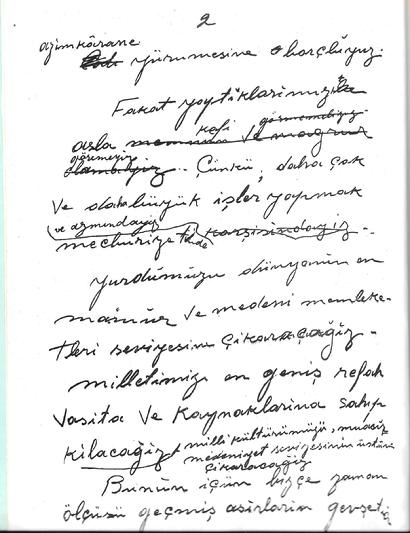 2
azimkârane
yürümesine borçluyuz.
Fakat yaptıklarımızı
asla kâfi
göremeyiz. Çünkü, daha çok
ve daha büyük işler yapmak
mecburiyetinde ve azmindayız
karşısındayız.
yurdumuzu dünyanın en
mâmûr ve medenî memleke-
tleri seviyesine çıkaracağız.
milletimizi en geniş refah
Vasıta ve Kaynaklarına sahip
kılacağız millî kültürümüzü, muasır
medeniyet seviyesinin üstüne
çıkaracağız
Bunun için bizce zaman
ölçüsü geçmiş asırların gevşeti